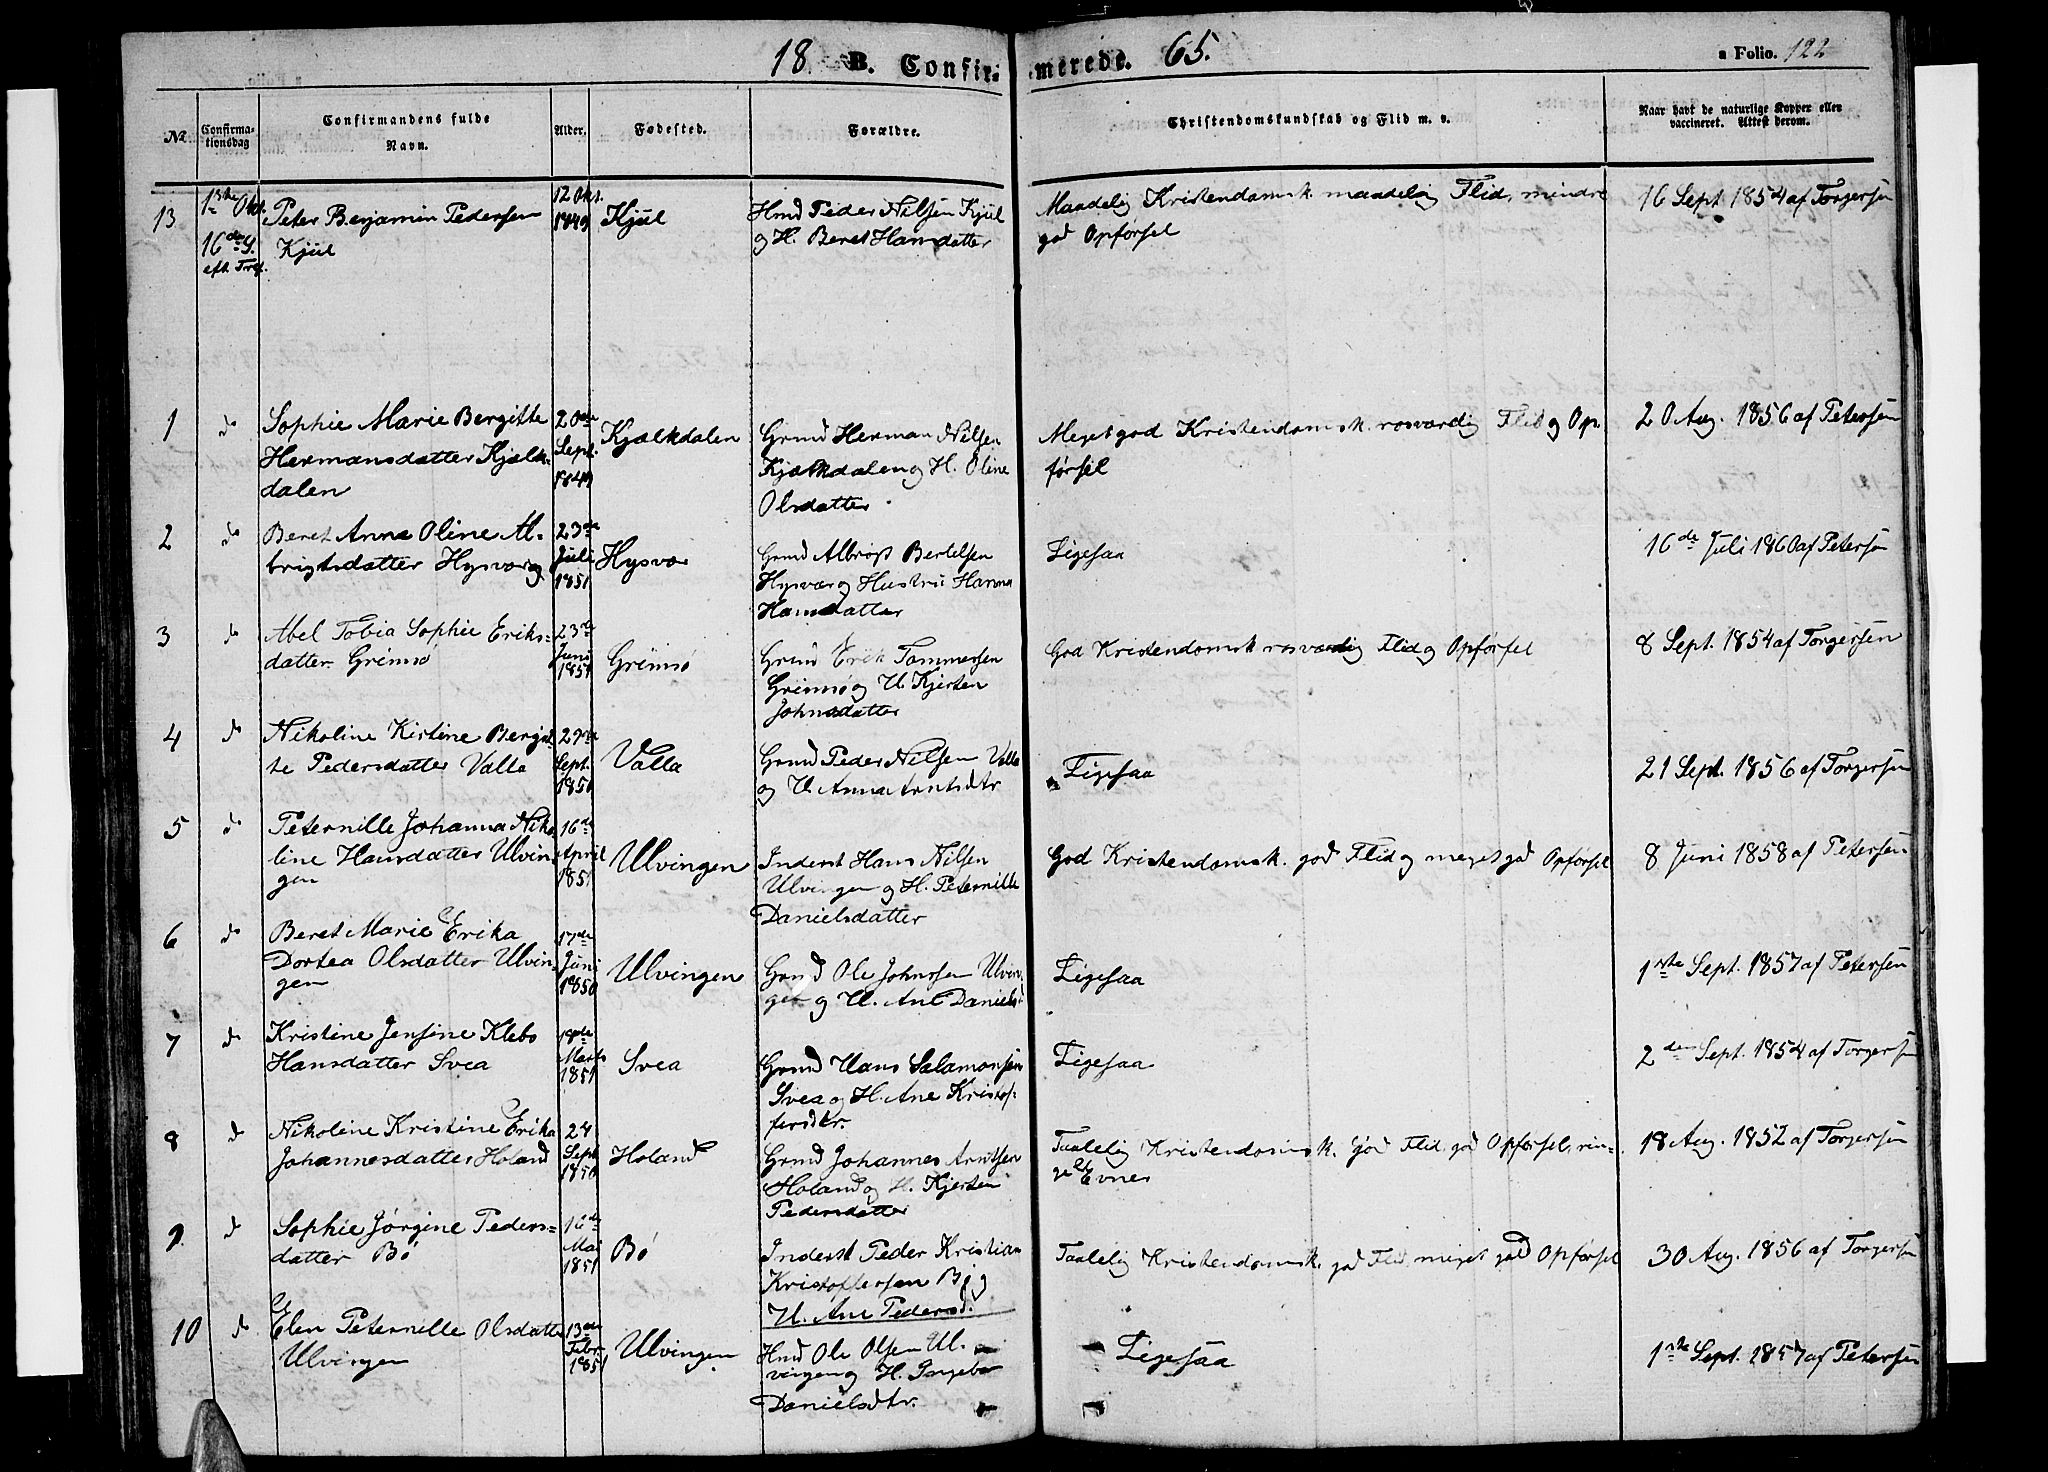 18 B. Confirmerede. 65.
a Folio. 122
No.
Confirma-
tionsdag
Confirmandens fulde
Navn.
Alder.
Fødested.
Forældre.
Christendomskundskab og Flid m. v.
Naar havt de naturlige Kopper eller
vaccineret. Attest derom.
13
1ste Okt.
16de S.
eft. Tref.
Peter Benjamin Pedersen
Kjül
12 Okt.
1849
Kjül
Hmd Peder Nilsen Kjül
og H. Beret Hansdatter
Maadelig Kristendomsk. maadelig Flid, mindre
god Opførsel
16 Sept. 1854 af Torgersen
1
do
Sophie Marie Bergitte
Hermansdatter Kjælk-
dalen
20de
Sept.
1849
Kjælkdalen
Grmd Herman Nilsen
Kjælkdalen og H. Oline
Olsdatter
Meget god Kristendomsk. rosværdig Flid og Op-
førsel
20 Aug. 1856 af Petersen
2
do
Beret Anna Oline Al-
brigtsdatter Hysvær
23de
Juli
1851
Hysvær
Grmd Albrigt Bertelsen
Hysvær og Hustru Hanna
Hansdatter
Ligesaa
16de Juli 1860 af Petersen
3
do
Abel Tobia Sophie Eriks-
datter Grimsø
23de
Juni
1851
Grimsø
Grmd Erik Tommessen
Grimsø og H. Kjersten
Johnsdatter
God Kristendomsk rosværdig Flid og Opførsel
8 Sept. 1854 af Torgersen
4
do
Nikoline Kirtine Bergit-
te Pedersdatter Valla
29de
Sept.
1850
Valla
Grmd Peder Nilsen Valla
og H. Anna Arntsdtr
Ligesaa
21 Sept. 1856 af Torgersen
5
do
Peternille Johanna Niko-
line Hansdatter Ulvin-
gen
16de
April
1851
Ulvingen
Inderst Hans Nilsen
Ulvingen og H. Peternille
Danielsdatter
God Kristendomsk. god Flid og meget god Opførsel
8 Juni 1858 af Petersen
6
do
Beret Marie Erika
Dortea Olsdatter Ulvin-
gen
17de
Juni
1850
Ulvingen
Grmd Ole Johnsen Ulvin-
gen og H. Ane Daniels
Ligesaa
1ste Sept. 1857 af Petersen
7
do
Kristine Jensine Klebo
Hansdatter Svea
18de
Marts
1851
Svea
Grmd Hans Salamonsen
Svea og H. Ane Kristof-
fersdtr.
Ligesaa
2den Sept. 1854 af Torgersen
8
do
Nikoline Kristine Erika
Johannesdatter Holand
24
Sept.
1850
Holand
Grmd Johannes Arntsen
Holand og H. Kjersten
Pedersdatter
Taalelig Kristendomsk. God Flid, god Opførsel, rin-
ge Evner
18 Aug. 1852 af Torgersen
9
do
Sophie Jørgine Peders-
datter Bø
16de
Mai
1851
Bø
Inderst Peder Kristian
Kristoffersen Bø og
H. Ane Pedersd.
Taalelig Kristendomsk. god Flid, meget god Opførsel
30 Aug. 1856 af Torgersen
10
do
Elen Peternille Olsdatter
Ulvingen
13de
Febr.
1851
Ulvingen
Hmd Ole Olsen Ul-
vingen og H. Ingebor
Danielsdtr.
Ligesaa
1ste Sept. 1857 af Petersen